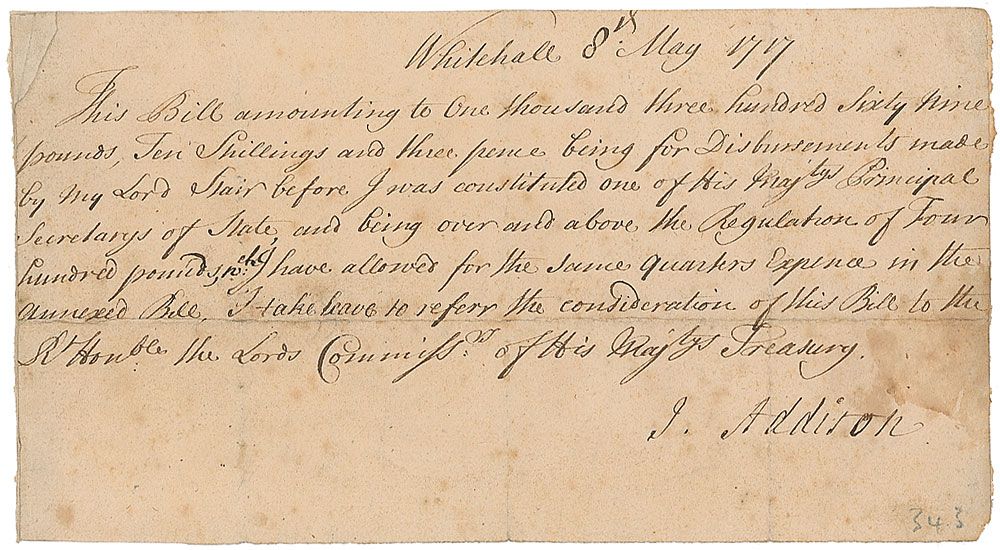 Whitehall 8th. May 1717
This Bill amounting to One thousand three hundred Sixty Nine
pounds, Ten Shillings and three pence being for Disbursements made
by My Lord Stair before I was constituted one of His Majtys Principal
Secretarys of State, and being over and above the Regulation of Four
hundred pounds, wch. I have allowed for the same Quarters Expence in the
Annexed Bill, I take leave to referr the consideration of this Bill to the
Rt. Honble. the Lords Commissrs. of His Majtys Treasury.
J. Addison
343